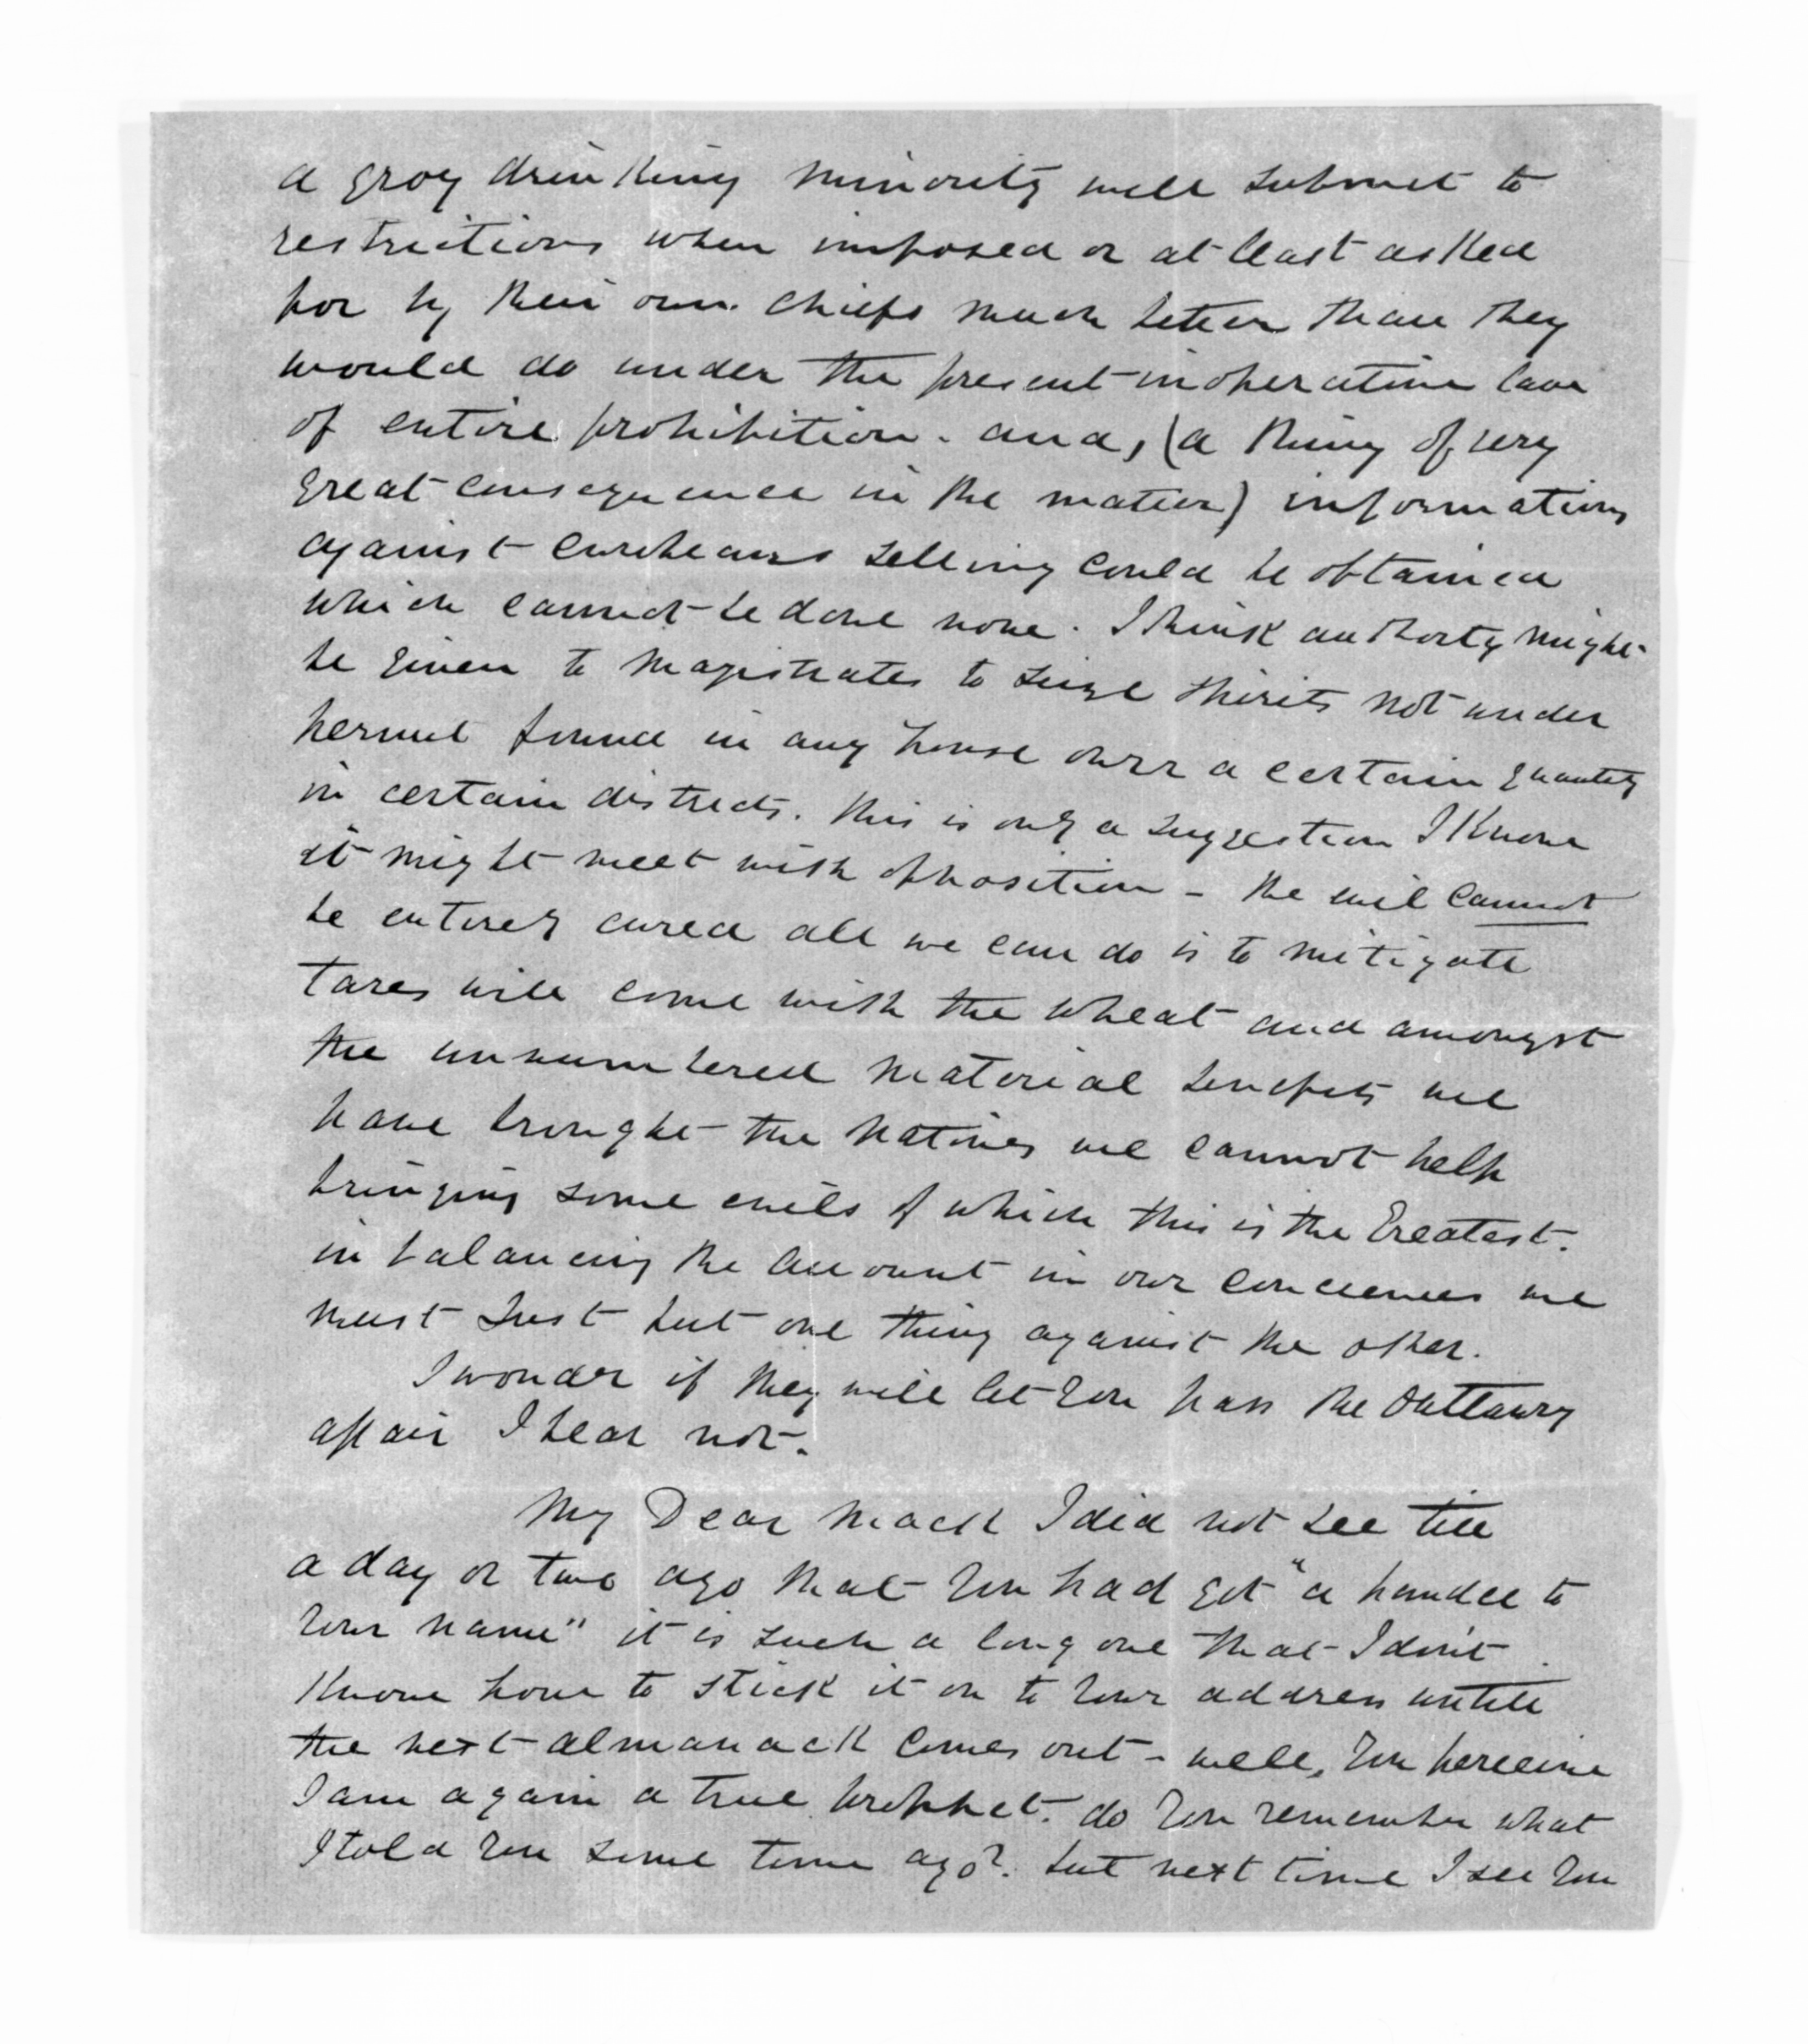 a grog drinking minority will submit to
restrictions when imposed or at least asked
for by their own chiefs much better than they
would do under the present inoperative law
of entire prohibition. and, (a thing of very
great consequence in the matter) informations
against europeans selling could be obtained
which cannot be done now. I think authorty might
be given to Magistrates to seize spirits not under
permit found in any house over a certain quantity
in certain districts. this is only a suggestion I Know
it might meet with opposition - the evil cannot
be entirely cured all we can do is to mitigate
tares will come with the wheat and amongst
the unnumbered material benefits we
have brought the natives we cannot help
bringing some evils of which this is the Greatest.
in balancing the account in our conciences we
must just put one thing against the other.
I wonder if they will let you pass the Outlawry
affair I fear not.
My Dear Mack I did not see till
a day or two ago that you had got "a handle to
your name" it is such a long one that I dont
Know how to stick it on to your address untill
the next almanack comes out - well, you perceive
I am again a true prophet. do you remember what
I told you some time ago? but next time I see you